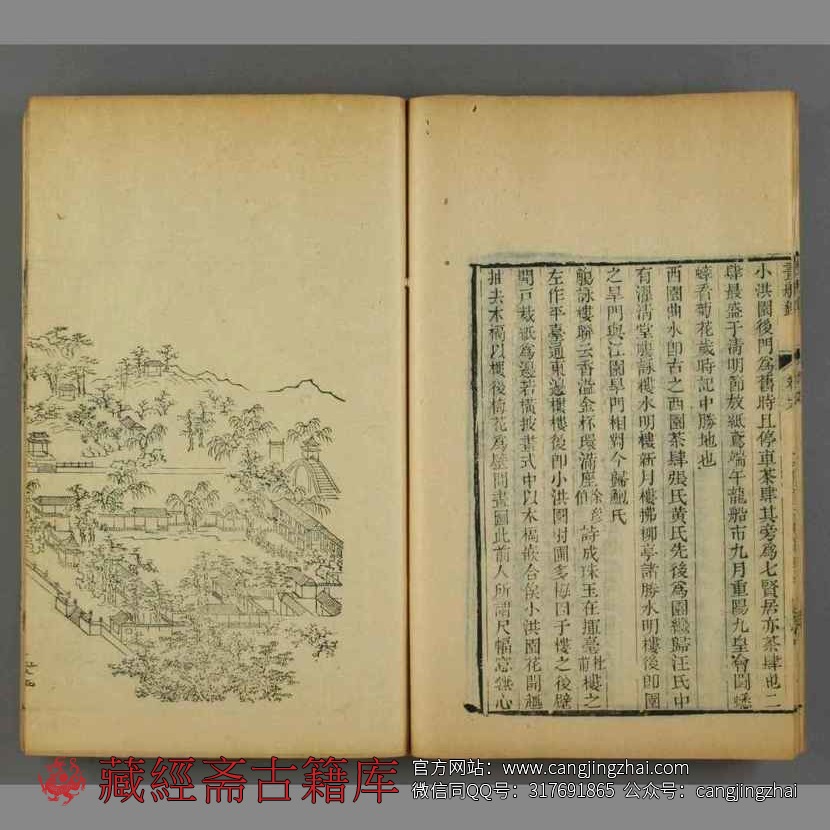 畫舫錄
卷六
小洪園後門為舊時且停車茶肆其旁為七賢居亦茶肆也二
肆最盛于清明節放紙鳶端午龍船市九月重陽九皇會鬭蟋
蟀看菊花歲時記中勝地也
西園曲水即古之西園茶肆張氏黃氏先後為園繼歸汪氏中
有濯清堂觴詠樓水明樓新月樓拂柳亭諸勝水明樓後即園
之旱門與江園旱門相對今歸鮑氏
觴詠樓聯云香溢金杯環滿座徐彥伯詩成珠玉在揮毫杜甫樓之
左作平臺通東邊樓樓後即小洪園射圃多梅因于樓之後壁
開戶裁紙為邊若橫披畫式中以木槅嵌合俟小洪園花開趣
抽去木槅以樓後梅花為壁間畫圖此前人所謂尺幅窗無心
藏經斋古籍库
官方网站：www.cangjingzhai.com
微信同QQ号：317691865 公众号：cangjingzhai